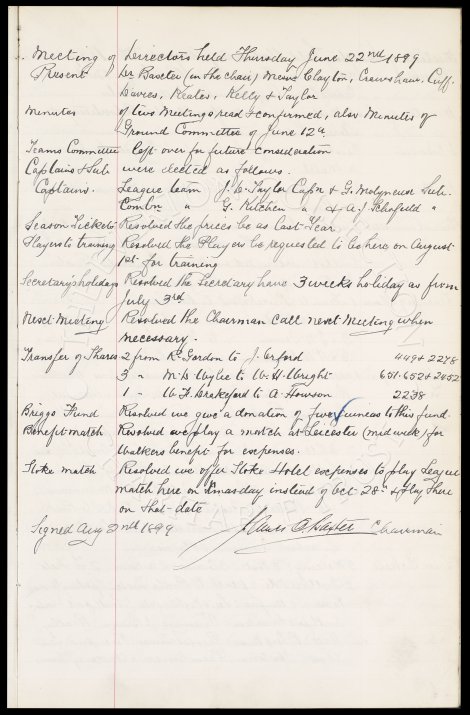 Meeting of Derrectors held Thursday June 22nd 1899
Present Dr Baxter (in the chair) Messrs Clayton, Crawshaw, Cuff.
Davies, Keates, Kelly & Taylor
Minutes of two Meetings read & confirmed, also Minutes of
Ground Committee of June 12th.
Teams Committee left over for future consideration
Captains & Sub were elected as follows.
Captains. League team J. D. Taylor Capn & G. Molyneux Sub.
Combn " G. Kitchen " & A. J. Schofield "
Season Tickets Resolved the prices be as last year
Players to training Resolved the Players be requested to be here on August
1st for training
Secretary's holidays Resolved the Secretary have 3 weeks holiday as from
July 3rd
Next Meeting Resolved the Chairman call next Meeting when
necessary.
Transfer of Shares 2 from R. Gordon to J. Orford 449 & 2278
3 " M. D. Wylie to W. H. Wright 651-652 & 2452
1 " W. F. Brakeford to A. Howson 2238
Briggs Fund Resolved we give a donation of five guineas to this fund.
Benefit match Resolved we play a match at Leicester (midweek) for
Walkers benefit for expenses.
Stoke match Resolved we offer Stoke Hotel expenses to play League
match here on Xmas day instead of Oct 28th & play there
on that date
Signed Aug 2nd 1899 James C. Baxter Chairman